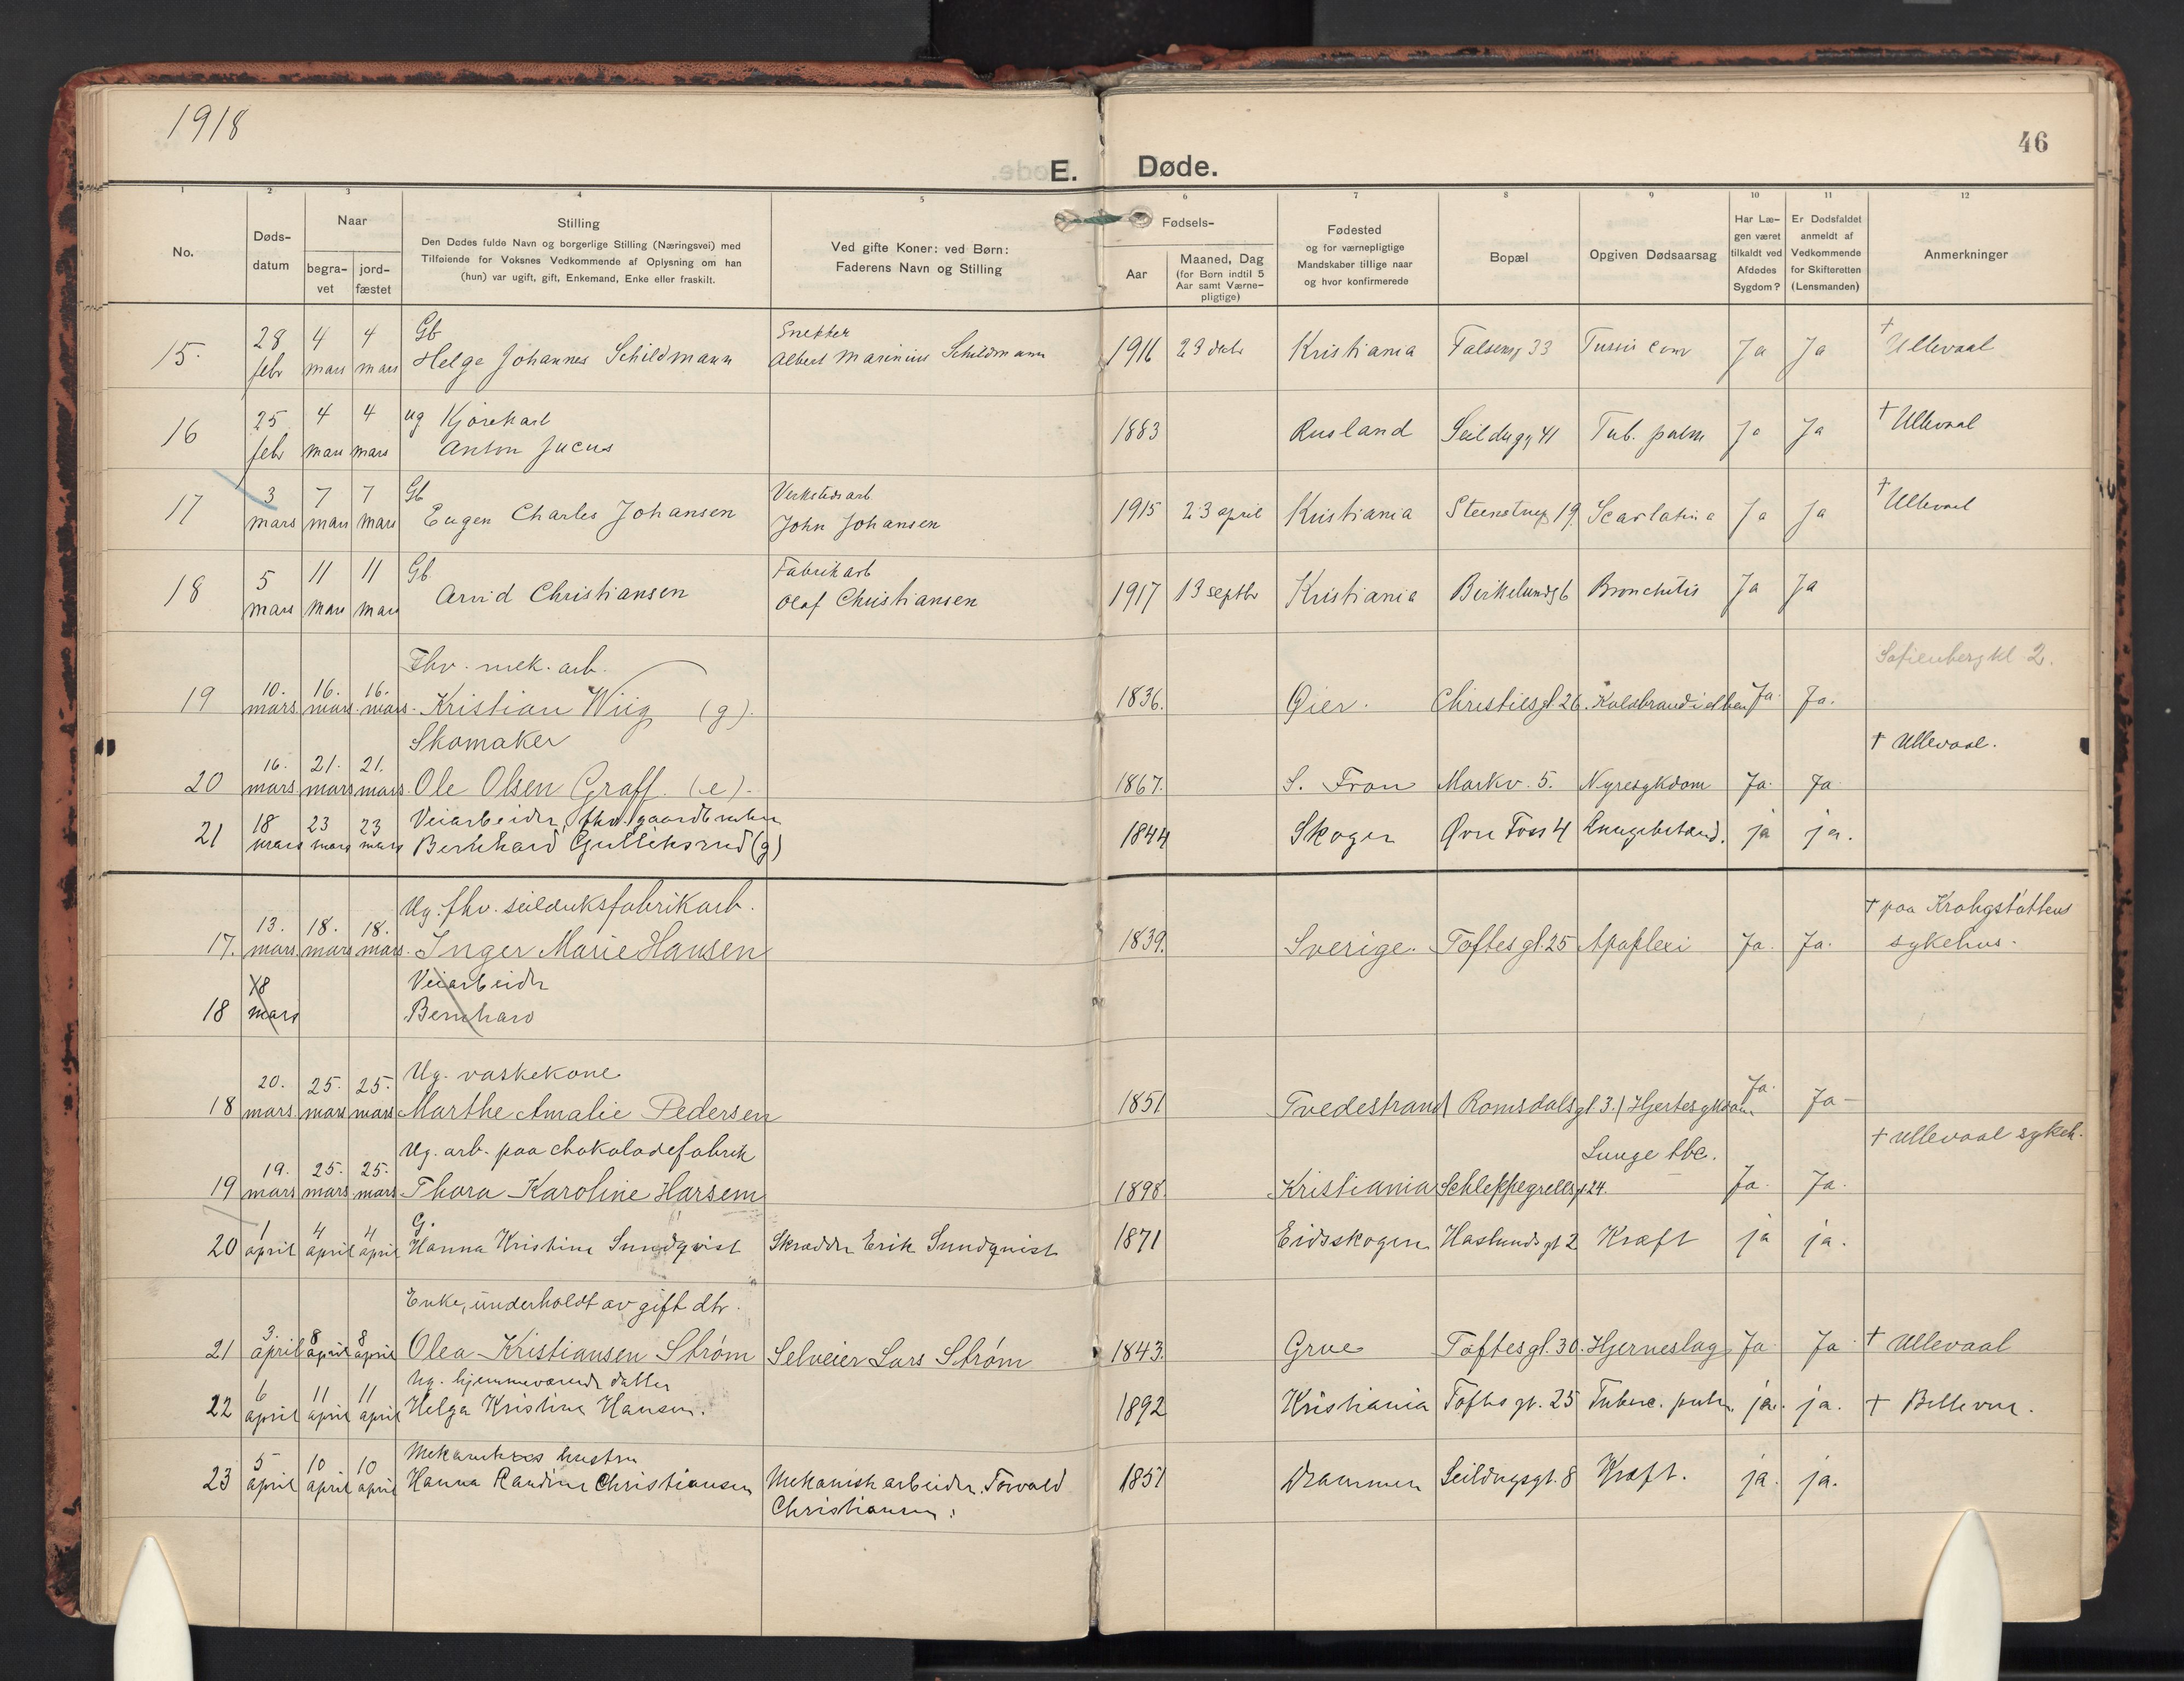 1918
46
E. Døde.
1 2 3 4 5 6 7 8 9 10 11 12
No.
Døds-
datum
Naar
begra-
vet
jord-
fæstet
Stilling
Den Dødes fulde Navn og borgerlige Stilling (Næringsvei) med
Tilføiende for Voksnes Vedkommende af Oplysning om han
(hun) var ugift, gift, Enkemand, Enke eller fraskilt.
Ved gifte Koner: ved Børn:
Faderens Navn og Stilling
Fødsels-
Aar
Maaned, Dag
(for Børn indtil 5
Aar samt Værne-
pligtige)
Fødested
og for værnepligtige
Mandskaber tillige naar
og hvor konfirmerede
Bopæl
Opgiven Dødsaarsag
Har Læ-
gen været
tilkaldt ved
Afdødes
Sygdom?
Er Dødsfaldet
anmeldt af
Vedkommende
for Skifteretten
(Lensmanden)
Anmerkninger
28 4 4 Gb Snekker †
15. febr mars mars Helge Johannes Schildmann Albert Marinius Schildmann 1916 Kristiania 33 Tussis conv Ja Ja Ullevaal
25 4 4 ug Kjørekarl
16 febr mars mars Anton Jucus 1883 Rusland Seildugg 41 Tub. pulm Ja Ja † Ullevaal
3 7 7 Gb Verkstedsarb
17 mars mars mars Eugen Charles Johansen John Johansen 1915 23 april Kristiania Steenstrupg 19 Scarlatina Ja Ja † Ullevaal
5 11 11 Gb. Fabrikarb
18 mars mars mars Arvid Christiansen Olaf Christiansen 1917 13 septbr Kristiania Birkelundg 6 Bronchitis Ja Ja
Fhv. mek. arb. Sofienberg kl 2.
10. 16. 16.
19 mars. mars. mars. Kristian Wiig (g). 1836. Øier. Christiesgt. 26. Koldbrand i Ja. Ja.
Skomaker † Ullevaal.
16. 21. 21.
20 mars. mars mars. Ole Olsen Graff. (e). 1867. S. Fron Markv. 5. Nyresykdom Ja. Ja.
18 23 23 Veiarbeider, fhv. gaardbruker
21 mars mars mars Bernhard Gulliksrud (g) 1844 Skoger Øvre Foss 4 ja ja.
Ug. fhv. seilduksfabrikarb. † paa Krohgstøttens
13. 18. 18.
17. mars. mars mars. Inger Marie Hansen 1839. Sverige. Toftesgt. 25 Apoplexi Ja. Ja. sykehus.
18 Veiarbeider
18 mars Bernhard
Ug. vaskekone
20. 25. 25.
18 mars. mars mars Marthe Amalie Pedersen 1851 Tvedestrand Romsdalsgt. 3. Hjertesykdom Ja. Ja
Ug. arb. paa chokoladefabrik Lunge tbc. † Ullevaal sykeh.
19. 25. 25.
19 mars mars mars Thora Karoline Harsem 1898. Kristiania Schleppegrellsgt 24. Ja. Ja.
1 4 4 G.
20 april april april Hanna Kristine Sundqvist Skrædder Erik Sundqvist 1871 Eidsskogen Haslundsgt 2 Kræft ja ja.
Enke, underholdt av gift dtr.
3. 8 8
21 april april april Olea Kristiansen Strøm Selveier Lars Strøm 1843. Grue Toftesgt. 30. Hjerneslag Ja Ja. † Ullevaal
6 11 11 Ug. hjemmeværende datter
22 april april april Helga Kristine Hansen. 1892 Kristiania Toftes gt. 25 Tuberc. pulm. ja. ja. † Bellevue.
5 10 10 Mekanikers hustru
23 april april april Hanna Randine Christiansen Mekanisk arbeider Torvald 1851 Drammen Seildugsgt. 8 Kræft. ja. ja.
Christiansen.